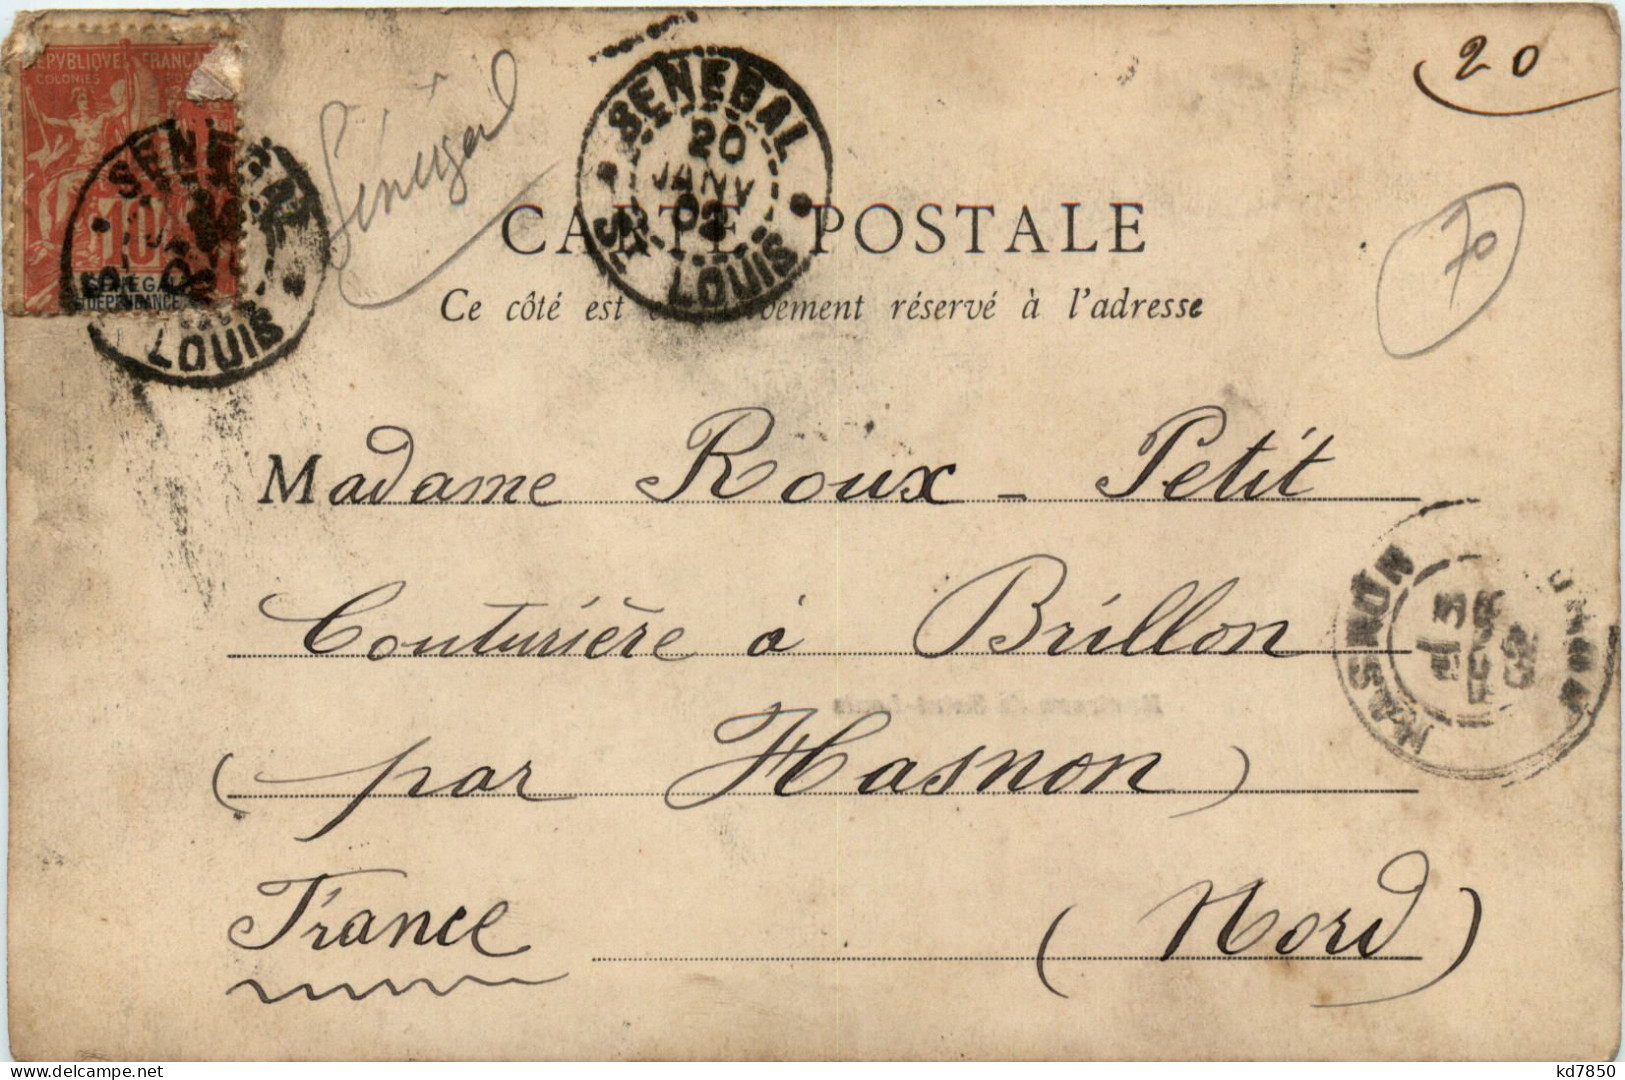 REPVBLIQVE FRANCAISE
COLONIES POSTES
10
SENEGAL
DEPENDANCE
SENEGAL
LOUIS
Sénégal
SENEGAL
20
JANV
02
ST LOUIS
20
70
CARTE POSTALE
Ce côté est exclusivement réservé à l'adresse
Madame Roux - Petit
Couturière à Brillon
(par Hasnon)
France (Nord)
HASNON
NORD
3
FEVR
02
kd7850